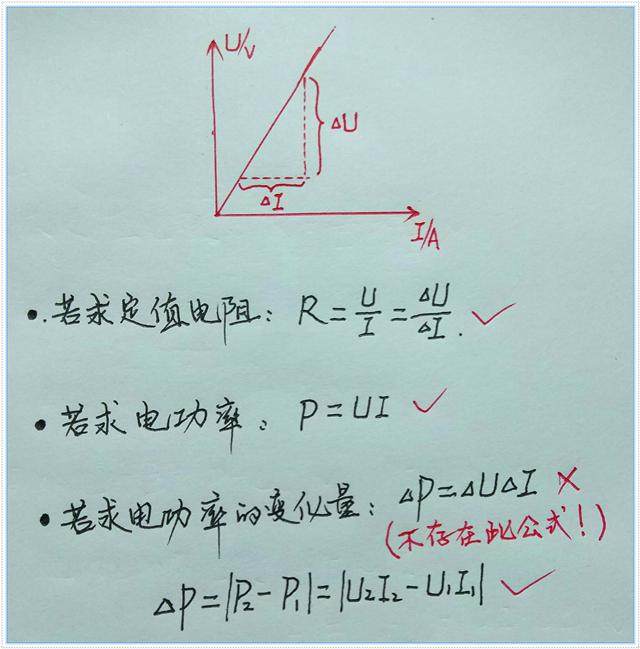 U/V
ΔU
ΔI
I/A
•.若求定值电阻: R=U/I=ΔU/ΔI. ✓
•若求电功率: P=UI ✓
•若求电功率的变化量: ΔP=ΔUΔI ×
(不存在此公式!)
ΔP=|P₂-P₁|=|U₂I₂-U₁I₁| ✓